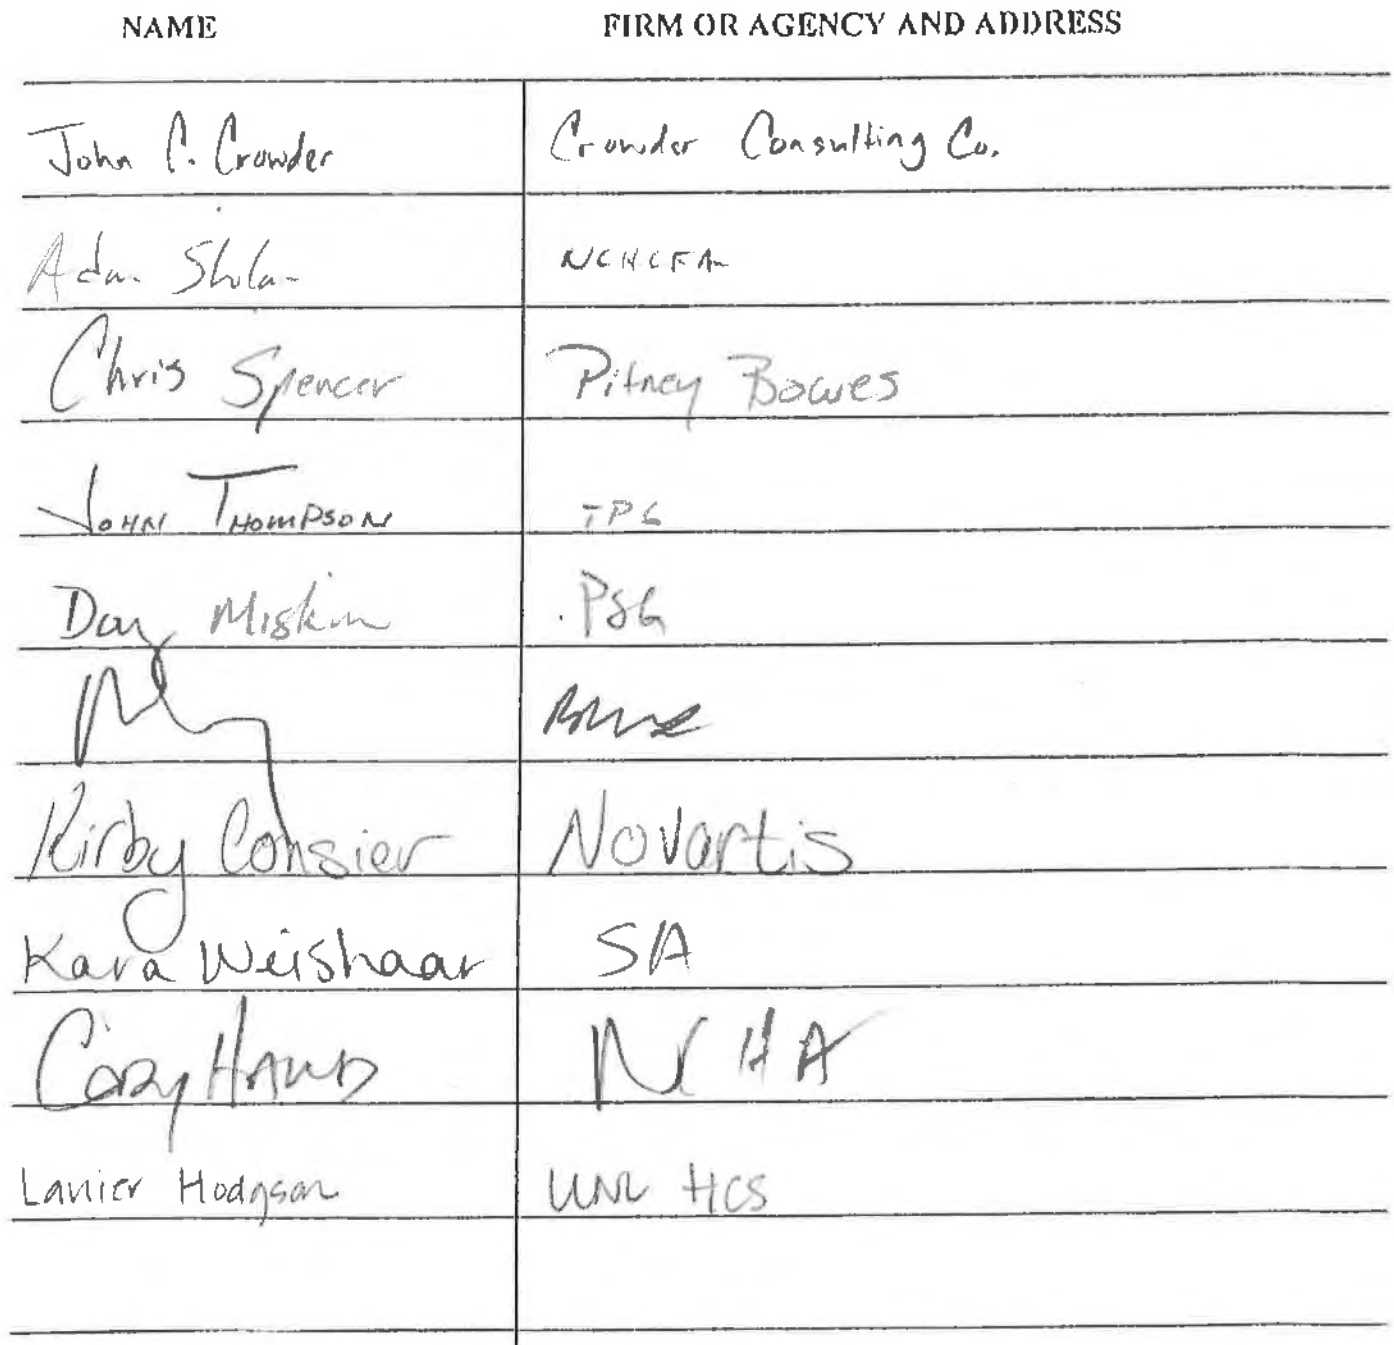 NAME FIRM OR AGENCY AND ADDRESS
John C. Crowder Crowder Consulting Co.
Adam Sholar NCHCFA
Chris Spencer Pitney Bowes
JOHN THOMPSON TPG
Miskin PSG
Kirby Consier Novartis
Kara Weishaar SA
Cody HAND NCHA
Lanier Hodgson UNC HCS